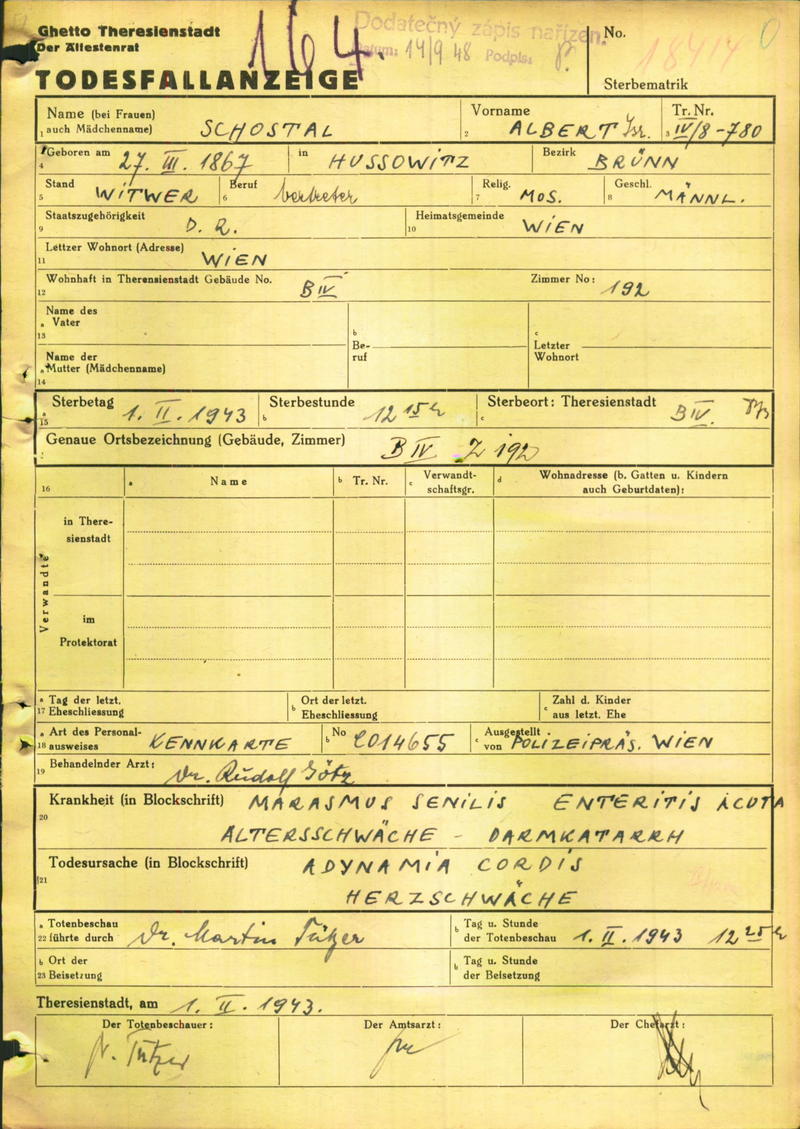 Ghetto Theresienstadt
Der Ältestenrat
164.
Dodatečný zápis nařízen.
Datum: 14/9 48 Podpis:
No. 18414
Sterbematrik
TODESFALLANZEIGE
Name (bei Frauen) Vorname Tr. Nr.
1 auch Mädchenname) SCHOSTAL 2 ALBERT Isr. 3 IV/8-780
4 Geboren am 27. III. 1867 in HUSSOWITZ Bezirk BRÜNN
Stand Beruf Relig. Geschl.
5 WITWER 6 Vertreter 7 MOS. 8 MÄNNL.
Staatszugehörigkeit Heimatsgemeinde
9 D. R. 10 WIEN
Lettzer Wohnort (Adresse)
11 WIEN
Wohnhaft in Therensienstadt Gebäude No. Zimmer No:
12 B IV 192
Name des
a Vater
13
b
Be-
ruf
c
Letzter
Wohnort
Name der
a Mutter (Mädchenname)
14
Sterbetag Sterbestunde Sterbeort: Theresienstadt
a 15 1. II. 1943 b 12 15 h c B IV.
Genaue Ortsbezeichnung (Gebäude, Zimmer) B IV Z 192
16 a Name b Tr. Nr. c Verwandt-
schaftsgr. d Wohnadresse (b. Gatten u. Kindern
auch Geburtdaten):
Verwandte
in There-
sienstadt
im
Protektorat
a Tag der letzt. Ort der letzt. Zahl d. Kinder
17 Eheschliessung b Eheschliessung c aus letzt. Ehe
a Art des Personal- No Ausgestellt
18 ausweises KENNKARTE b 2014655 c von POLIZEIPRÄS. WIEN
Behandelnder Arzt:
19 Dr. Rudolf Götz
Krankheit (in Blockschrift) MARASMUS SENILIS ENTERITIS ACUTA
20 ALTERSSCHWÄCHE - DARMKATARRH
Todesursache (in Blockschrift) ADYNAMIA CORDIS
21 HERZSCHWÄCHE
a Totenbeschau b Tag u. Stunde
22 führte durch Dr. Martin der Totenbeschau 1. II. 1943 12 25 h
b Ort der b Tag u. Stunde
23 Beisetzung der Beisetzung
Theresienstadt, am 1. II. 1943.
Der Totenbeschauer: Der Amtsarzt: Der Chefarzt: